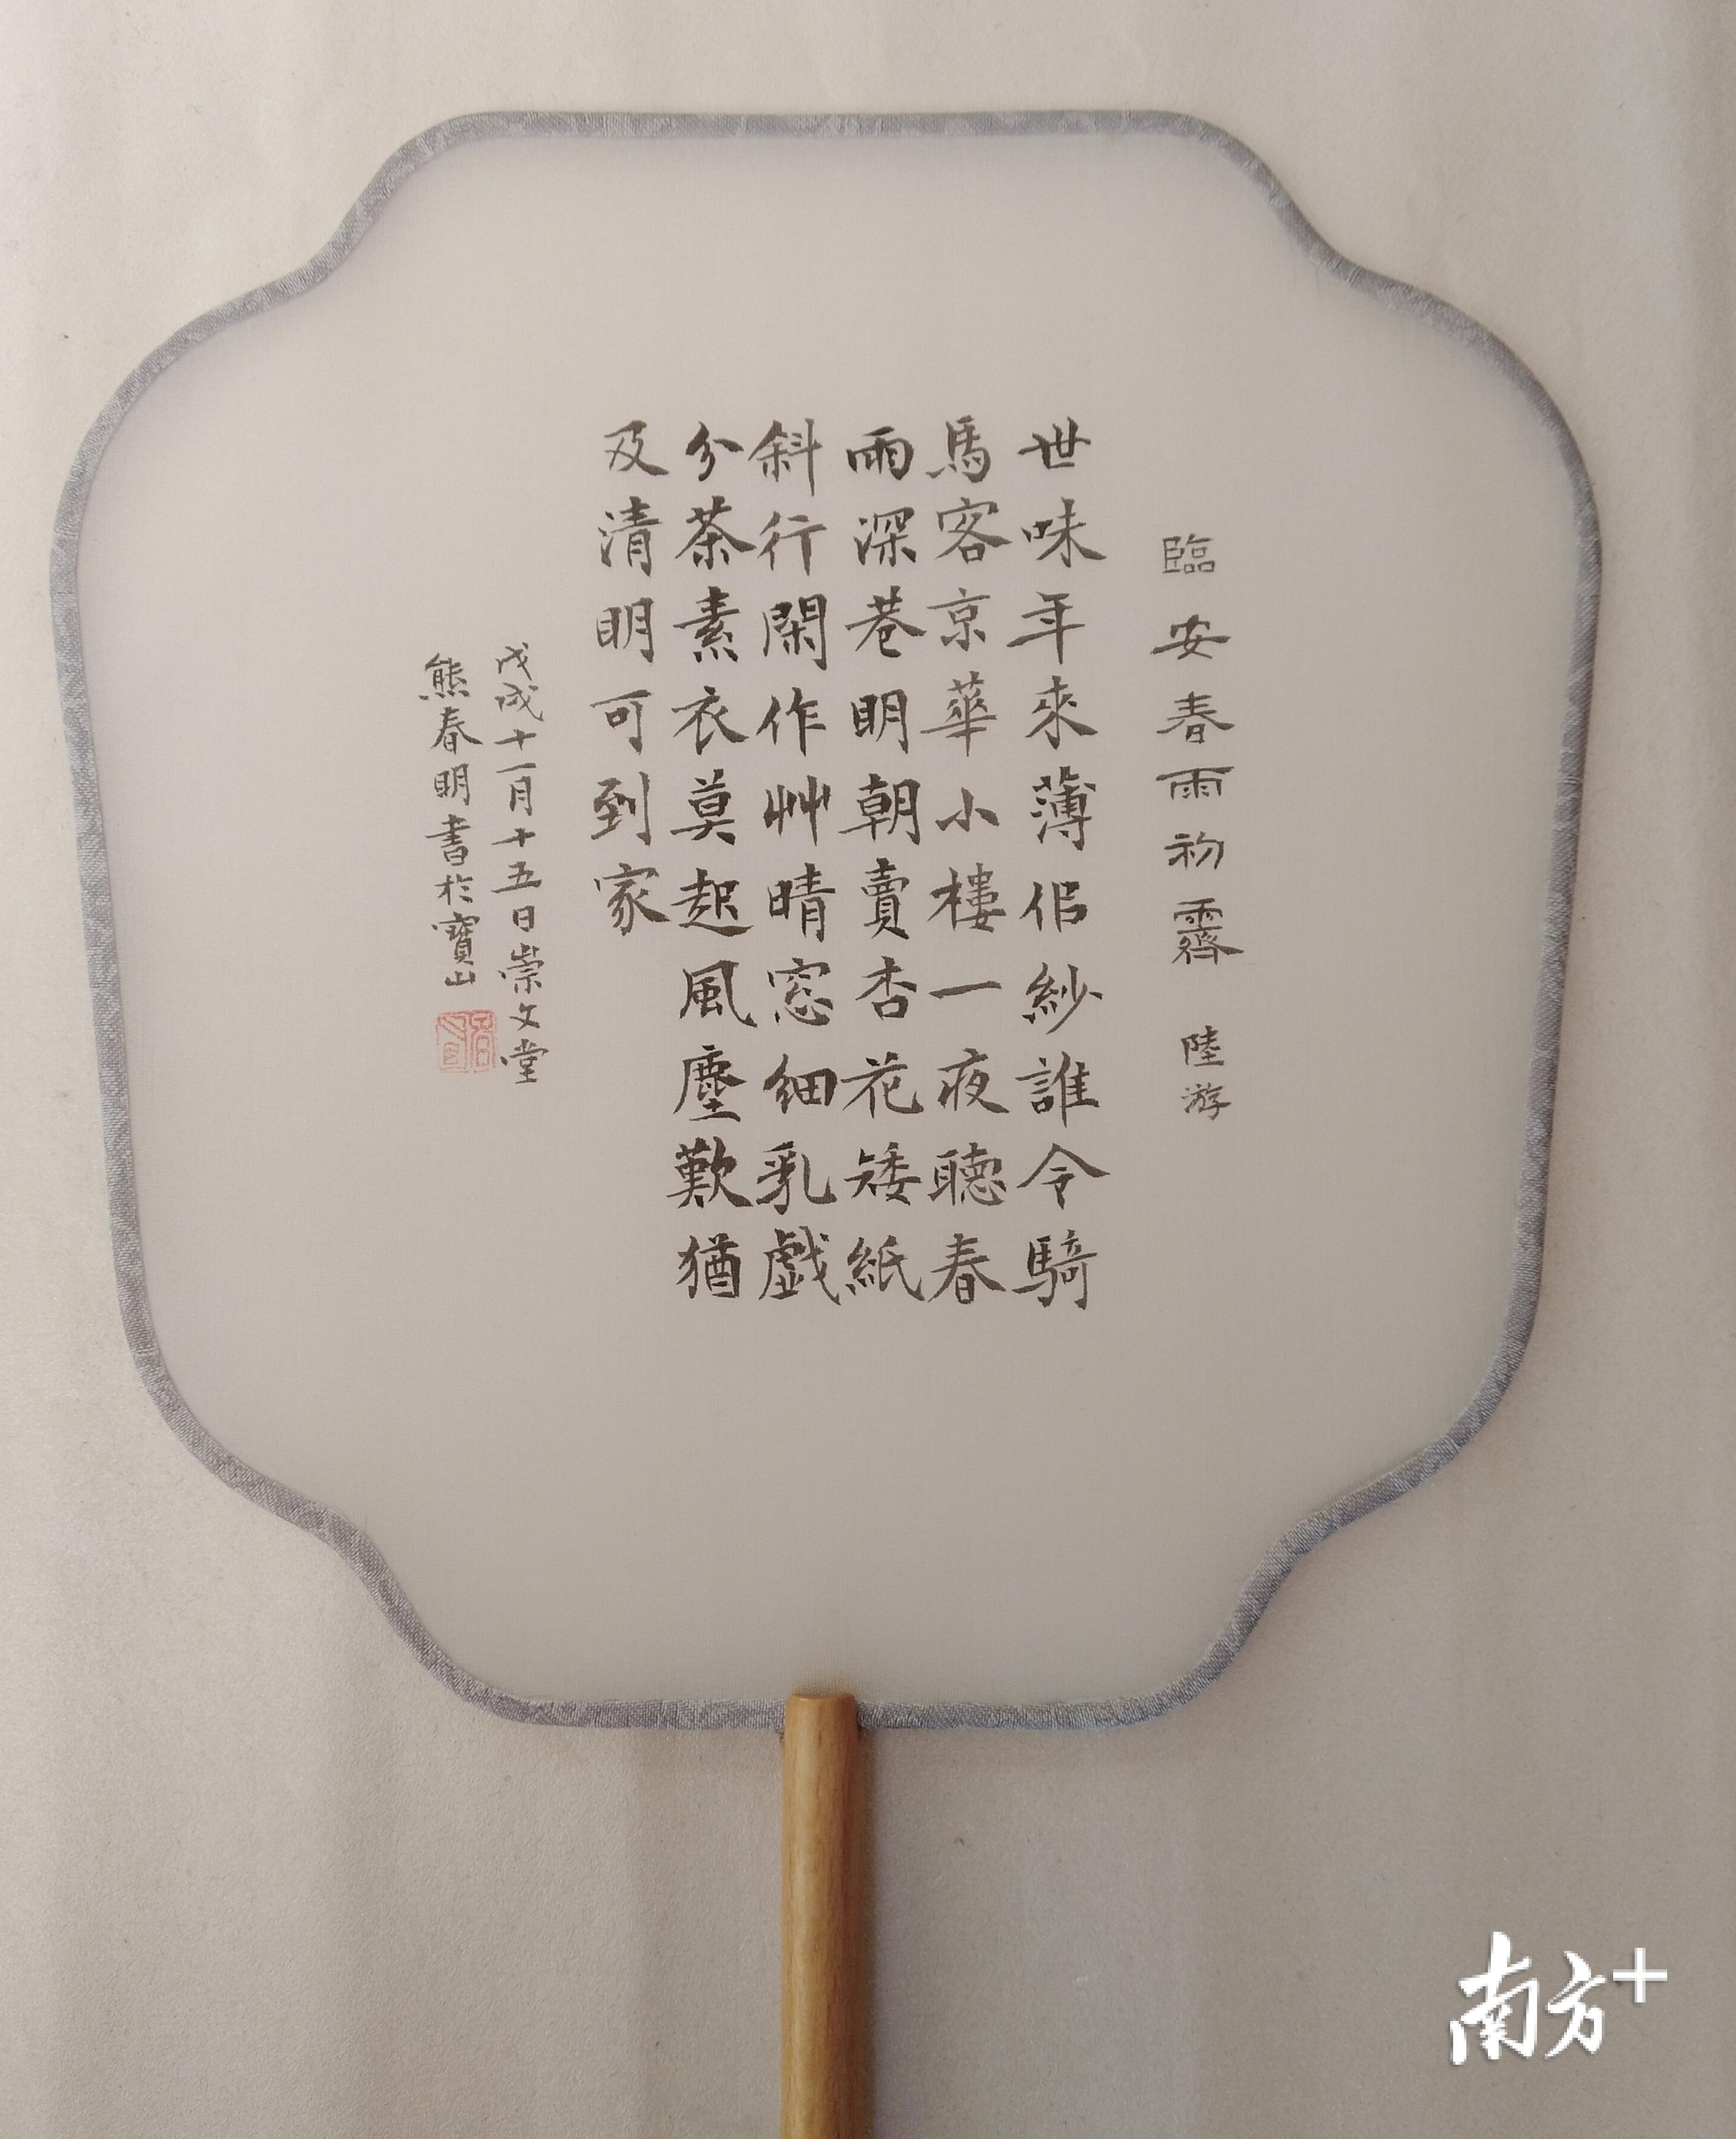 臨安春雨初霽 陸游
世味年來薄佀紗誰令騎
馬客京華小樓一夜聽春
雨深巷明朝賣杏花矮紙
斜行閑作艸晴窓細乳戯
分茶素衣莫起風塵歎猶
及清明可到家
戊戌十一月十五日崇文堂
熊春明書於寶山
南方+